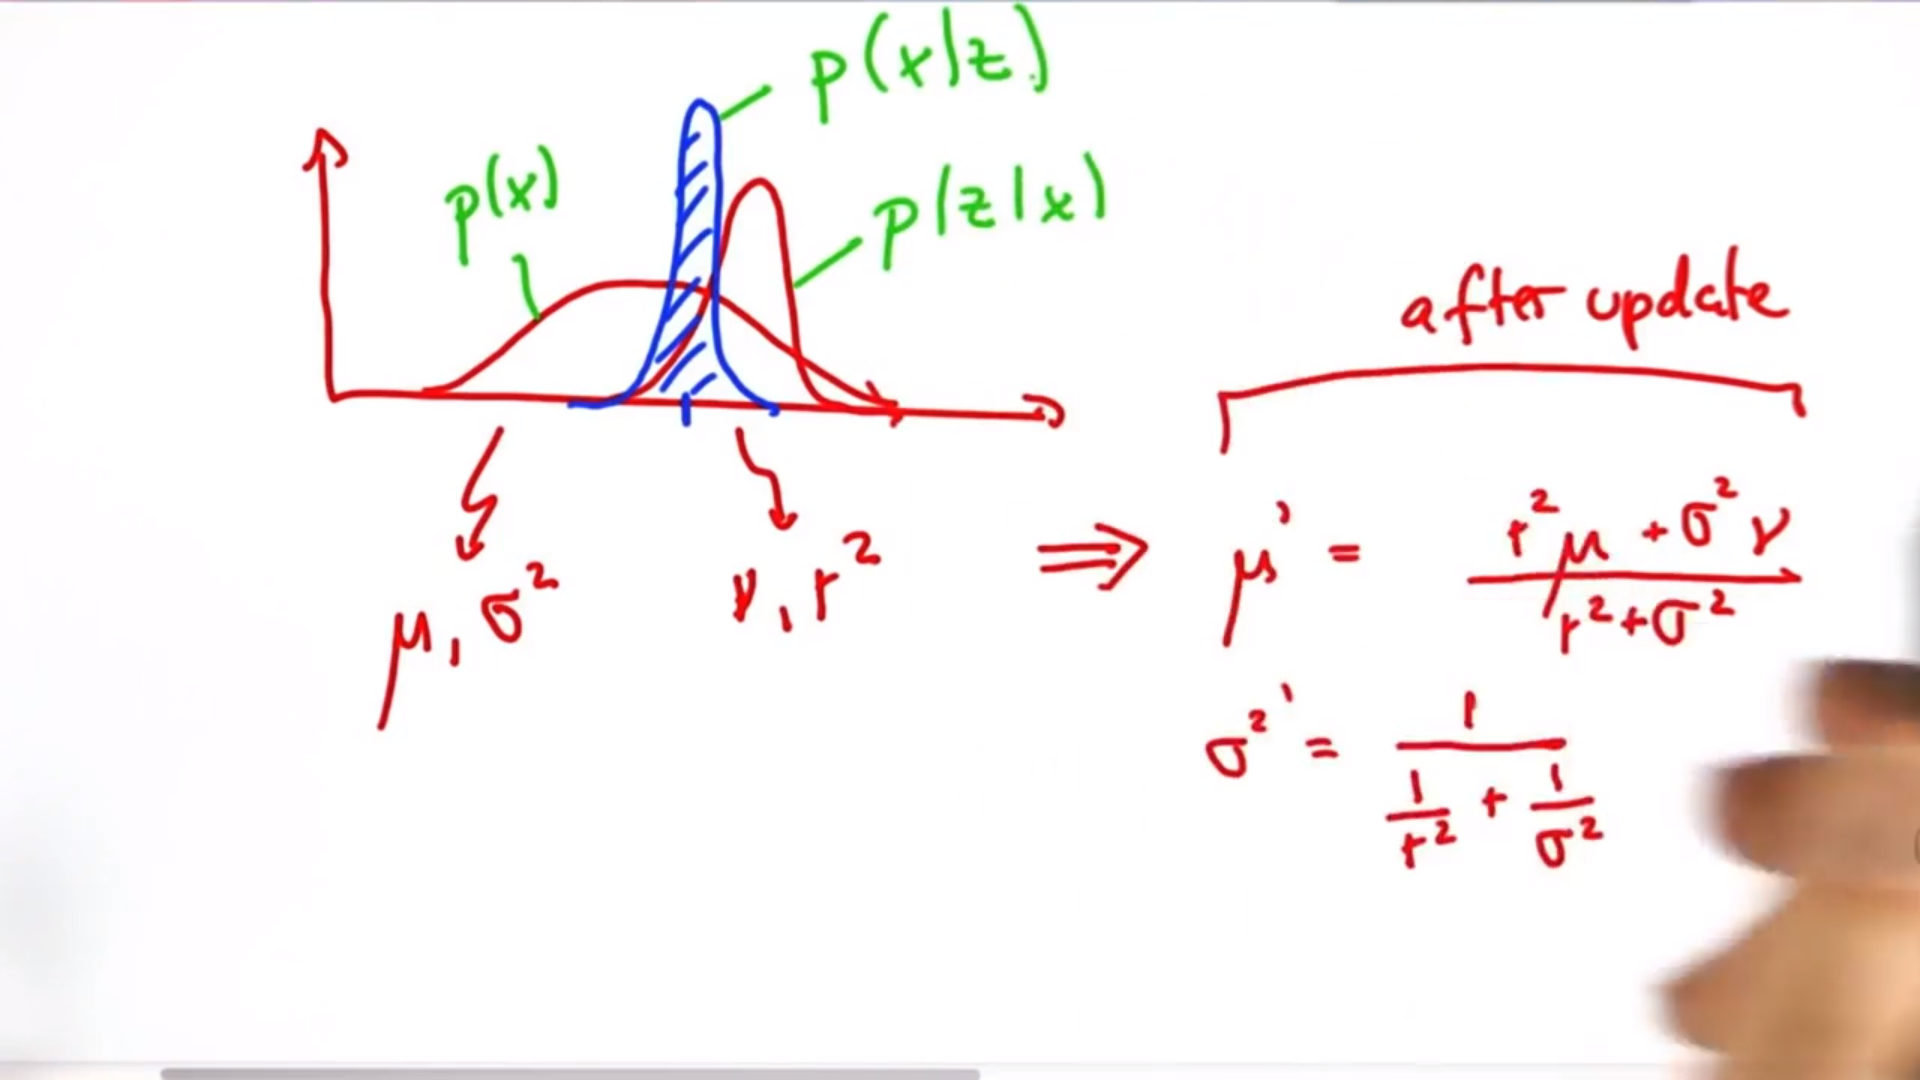 p(x|z)
p(x)
p(z|x)
after update
μ, σ²
ν, r²
⇒ μ' = (r²μ + σ²ν) / (r² + σ²)
σ²' = 1 / (1/r² + 1/σ²)